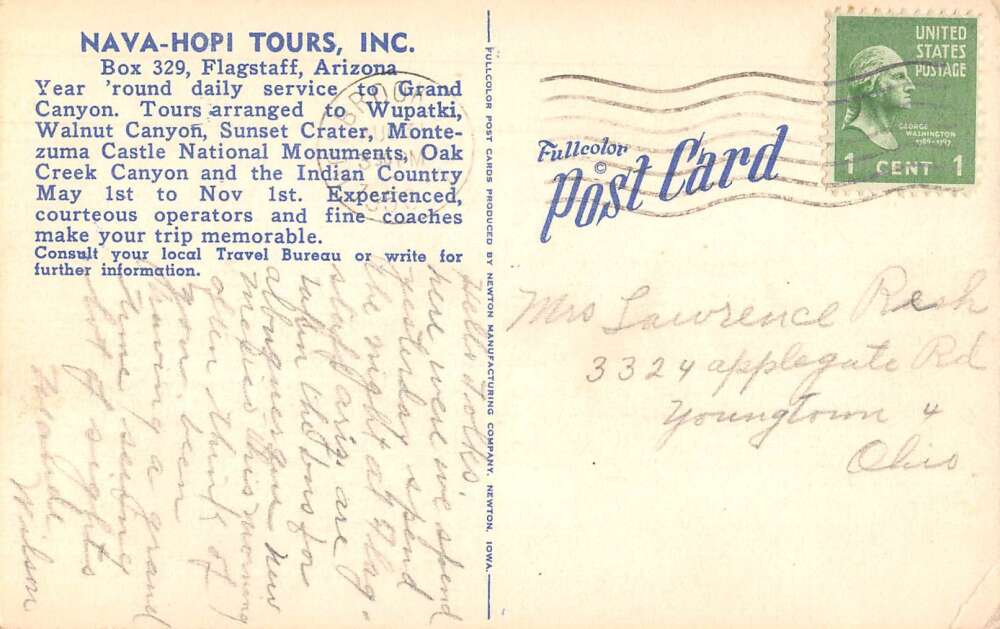 NAVA-HOPI TOURS, INC.
Box 329, Flagstaff, Arizona
Year 'round daily service to Grand
Canyon. Tours arranged to Wupatki,
Walnut Canyon, Sunset Crater, Monte-
zuma Castle National Monuments, Oak
Creek Canyon and the Indian Country
May 1st to Nov 1st. Experienced,
courteous operators and fine coaches
make your trip memorable.
Consult your local Travel Bureau or write for
further information.
Hello Folks,
here were we spend
yesterday spend
the night at Flag-
staff ariz. are
takin the bus for
albuquerque new
mexico this morning
often think of
you been
having a grand
time seeing
a lot of sights
Wilson
FULLCOLOR POST CARDS PRODUCED BY NEWTON MANUFACTURING COMPANY, NEWTON, IOWA.
Fullcolor
©
Post Card
UNITED
STATES
POSTAGE
GEORGE
WASHINGTON
1789-1797
1 CENT 1
Mrs Lawrence Resh
3324 applegate Rd
Youngtown 4
Ohio